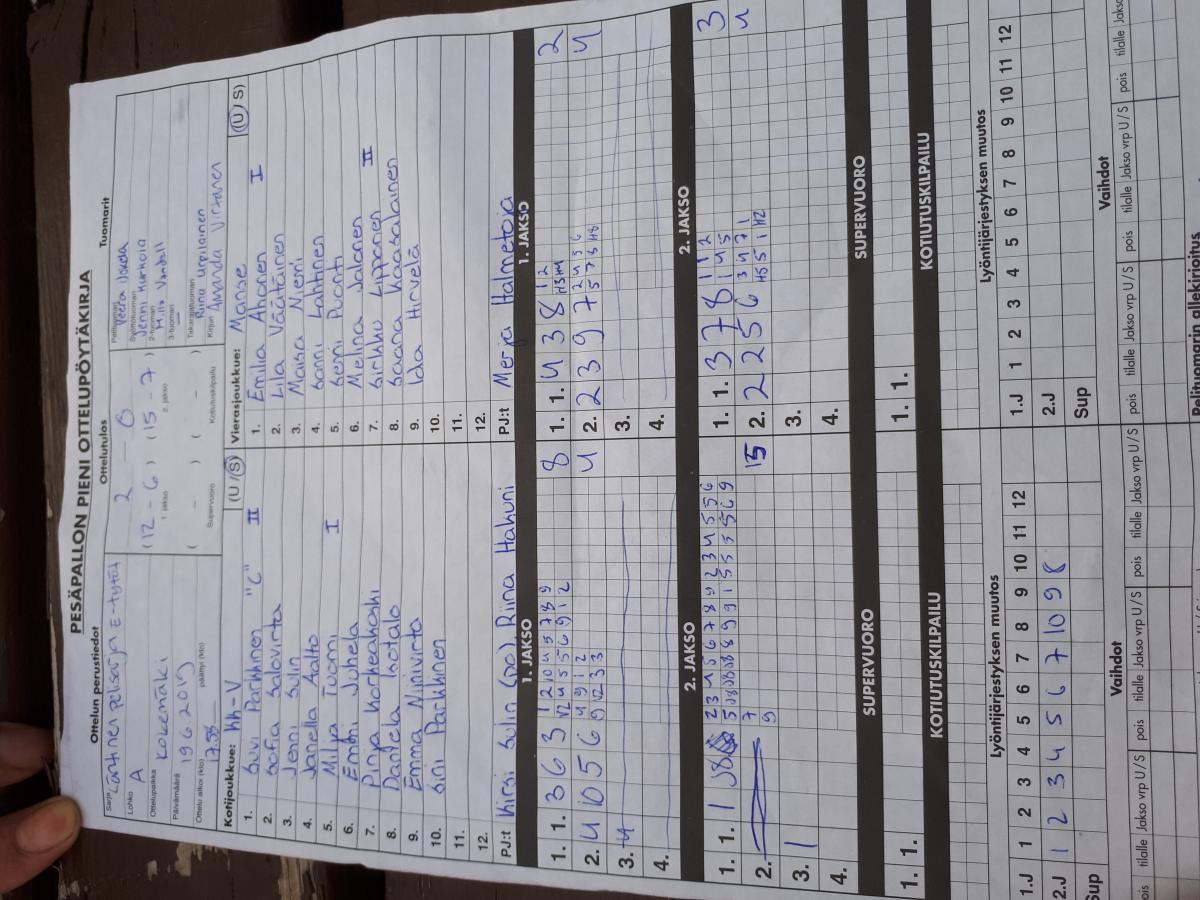 PESÄPALLON PIENI OTTELUPÖYTÄKIRJA
Ottelun perustiedot
Ottelutulos
Tuomarit
Sarja Läntinen pelisarja E-tytöt
Lohko A
Ottelupaikka Kokemäki
Päivämäärä 19 6 2019
Ottelu alkoi (klo) 17.55 päättyi (klo)
2 - 0
(12 - 6) (15 - 7)
1. jakso 2. jakso
( - ) ( - )
Supervuoro Kotiutuskilpailu
Pelituomari Veera
Syöttötuomari Jenni Kurkola
2-tuomari Milla
3-tuomari —
Takarajatuomari Riina Urpilainen
Kirjuri Amanda Virtanen
Kotijoukkue: KK-V (U / S)
1. Suvi Parkkinen "C" II
2. Sofia Salovirta
3. Jenni Sulin
4. Janella Aalto
5. Milja Tuomi I
6. Emmi Juhela
7. Pinja Korkeakoski
8. Daniela Kotalo
9. Emma Niinivirta
10. Siri Parkkinen
11.
12.
PJ:t Kirsi Sulin (pj), Riina Hakuni
Vierasjoukkue: Manse (U / S)
1. Emilia Ahonen I
2. Lila Väätäinen
3. Maisa Niemi
4. Sonni Lahtinen
5. Senni Puonti
6. Melina Jalonen
7. Sirkku Lipponen II
8. Saana Kaasalainen
9. Ida Hirvelä
10.
11.
12.
PJ:t Merja Halmetoja
1. JAKSO
1. 1. 3 6 3 1 2 10 4 5 7 8 9 8
12 4 5 5 6 9 1 2
2. 4 10 5 6 4 9 1 2 4
9 12 3 3
3. 4
4.
1. JAKSO
1. 1. 4 3 8 1 2 2
H3 H4
2. 2 3 9 7 2 4 5 6 4
5 7 8 H8
3.
4.
2. JAKSO
1. 1. 1
2. 15
3. 1
4.
2. JAKSO
1. 1. 3 7 8 1 1 2 3
1 4 5
2. 2 2 5 6 3 4 7 1 4
H5 5 1 H2
3.
4.
SUPERVUORO
1. 1.
SUPERVUORO
1. 1.
KOTIUTUSKILPAILU
KOTIUTUSKILPAILU
Lyöntijärjestyksen muutos
1.J 1 2 3 4 5 6 7 8 9 10 11 12
2.J 1 2 3 4 5 6 7 10 9 8
Sup
Lyöntijärjestyksen muutos
1.J 1 2 3 4 5 6 7 8 9 10 11 12
2.J
Sup
Vaihdot
pois tilalle Jakso vrp U/S pois tilalle Jakso vrp U/S pois tilalle Jakso vrp U/S
Vaihdot
pois tilalle Jakso vrp U/S pois tilalle Jakso vrp U/S pois tilalle Jakso
Pelituomarin allekirjoitus